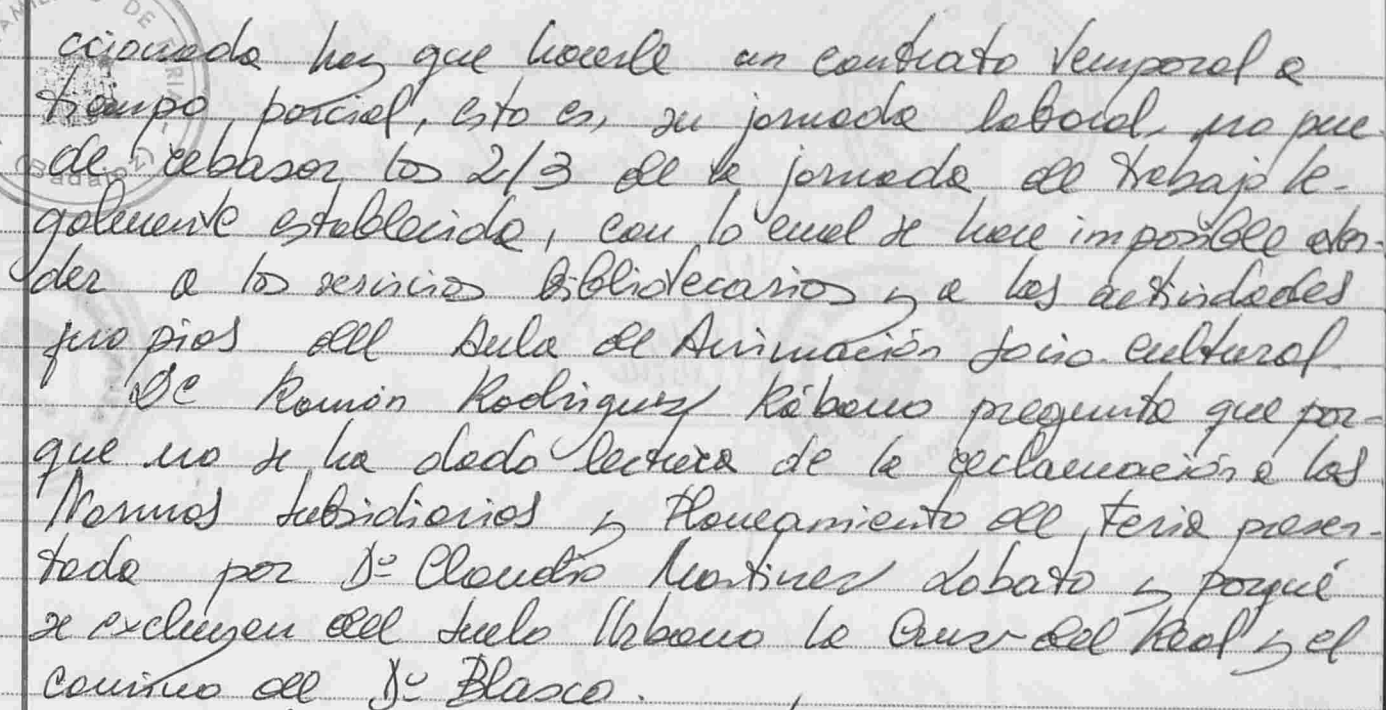 ccionada hay que hacerle un contrato temporal a
tiempo parcial, esto es, su jornada laboral, no pue-
de rebasar los 2/3 de la jornada de trabajo le-
galmente establecida, con lo cual se hace imposible aten-
der a los servicios Bibliotecarios y a las actividades
propias del Aula de Animación Socio-cultural.
Dº Román Rodríguez Rábano pregunta que por-
que no se ha dado lectura de la reclamación a las
Normas Subsidiarias y Planeamiento de Feria presen-
tada por Dº Claudio Martínez Lobato y porqué
se excluyen del suelo Urbano la Cruz del Real y el
camino de Dº Blasco.